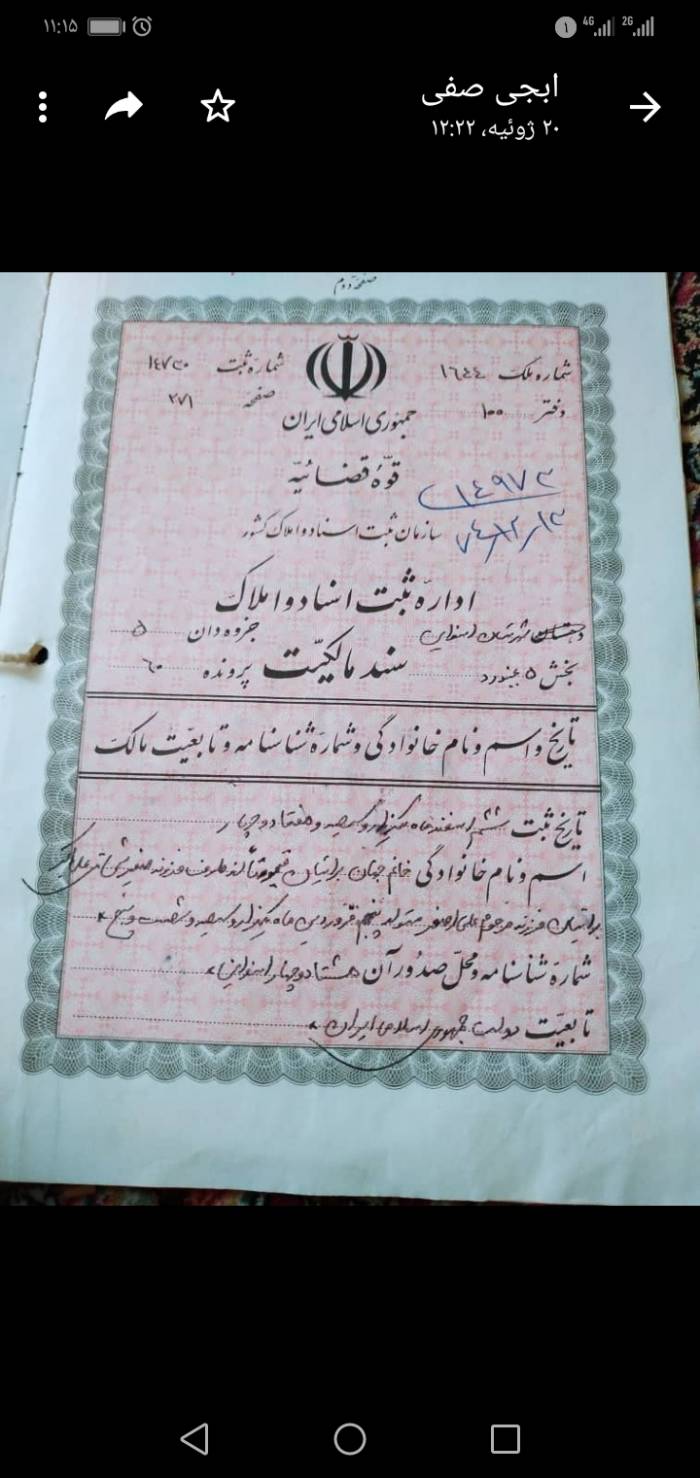 ۱۱:۱۵
۱ 4G 2G
ابجی صفی
۲۰ ژوئیه، ۱۲:۲۲
صفحه دوم
شماره ملک ۱۶۴۴
شماره ثبت ۱۴۷۳۰
دفتر ۱۰۰
صفحه ۲۷۱
جمهوری اسلامی ایران
قوّهٔ قضائیّه
۱۴۹۷۳
۷۴/۱۲/۱۳
سازمان ثبت اسناد و املاک کشور
ادارهٔ ثبت اسناد و املاک
شهرستان اسفراین جزوه‌دان ۵
بخش ۵ بجنورد سند مالکیّت پرونده ۶۰
تاریخ و اسم و نام خانوادگی و شمارهٔ شناسنامه و تابعیّت مالک
تاریخ ثبت ششم اسفندماه یکهزار و سیصد و هفتاد و چهار
اسم و نام خانوادگی خانم جهان براتیان
براتیان فرزند مرحوم علی اصغر متولد پنجم فروردین ماه یکهزار و سیصد و شصت و پنج
شمارهٔ شناسنامه و محلّ صدور آن هشتاد و چهار اسفراین
تابعیّت دولت جمهوری اسلامی ایران